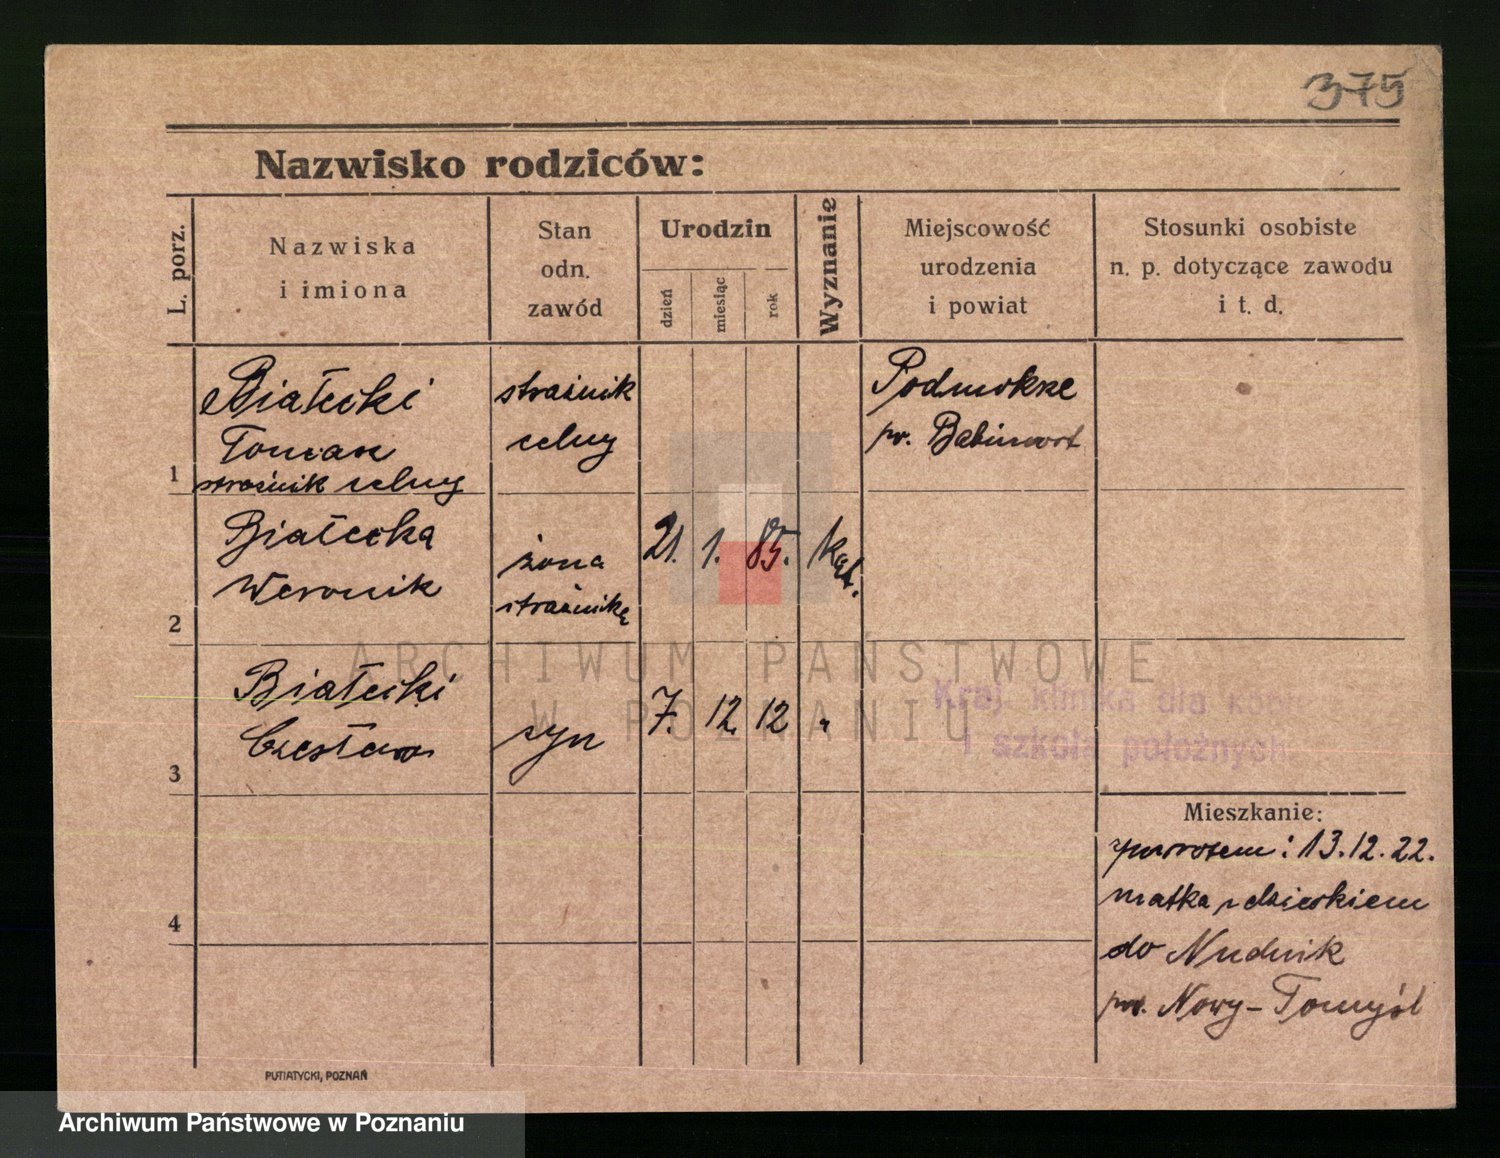 375
Nazwisko rodziców:
L. porz.
Nazwiska
i imiona
Stan
odn.
zawód
Urodzin
dzień
miesiąc
rok
Wyznanie
Miejscowość
urodzenia
i powiat
Stosunki osobiste
n. p. dotyczące zawodu
i t. d.
1
Białecki
Tomasz
strażnik celny
strażnik
celny
Podmokze
pw. Babimost
2
Białecka
Weronik
żona
strażnika
21. 1. 85. kat.
3
Białecki
Czesław
syn
7. 12. 12 "
Kraj. klinika dla kobiet
i szkoła położnych
4
Mieszkanie:
zpowrotem: 13.12.22.
matka z dzieckiem
do
pow. Nowy-Tomyśl
PUTIATYCKI, POZNAŃ
ARCHIWUM PAŃSTWOWE
W POZNANIU
Archiwum Państwowe w Poznaniu